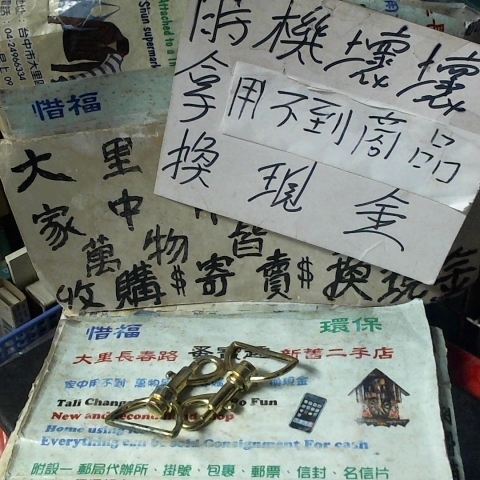 Attached to a
Shiun supermark
台中市大里
04-24966334
惜福
時機壞壞
拿用不到商品
換現金
大里
家中
萬物皆
收購$寄賣$換現金
惜福 環保
大里長春路 新舊二手店
家中用不到 萬物 現金
Tali Chang Fun
New and second hand shop
Home using
Everything can be sold Consignment For cash
附設一郵局代辦所、掛號、包裹、郵票、信封、名信片